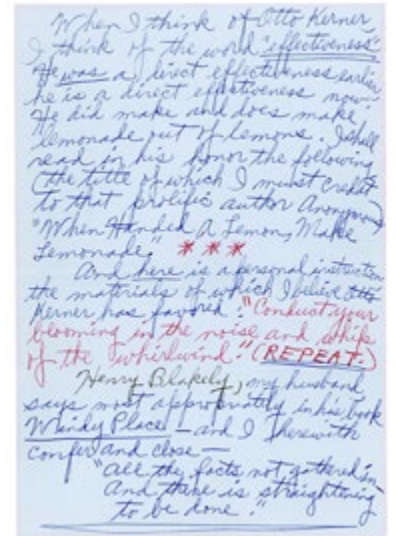 When I think of Otto Kerner,
I think of the word "effectiveness".
He was a direct effectiveness earlier
he is a direct effectiveness now.
He did make and does make
lemonade out of lemons. I shall
read in his honor the following
(the title of which I must credit
to that prolific author Anonymous)
"When Handed A Lemon, Make
Lemonade." * * *
And here is a personal instruction
the materials of which I believe Otto
Kerner has favored: "Conduct your
blooming in the noise and whip
of the whirlwind." (REPEAT.)
Henry Blakely, my husband
says most appropriately in his book
Windy Place — and I herewith
confer and close —
"All the facts not gathered in—
And there is straightening
to be done."